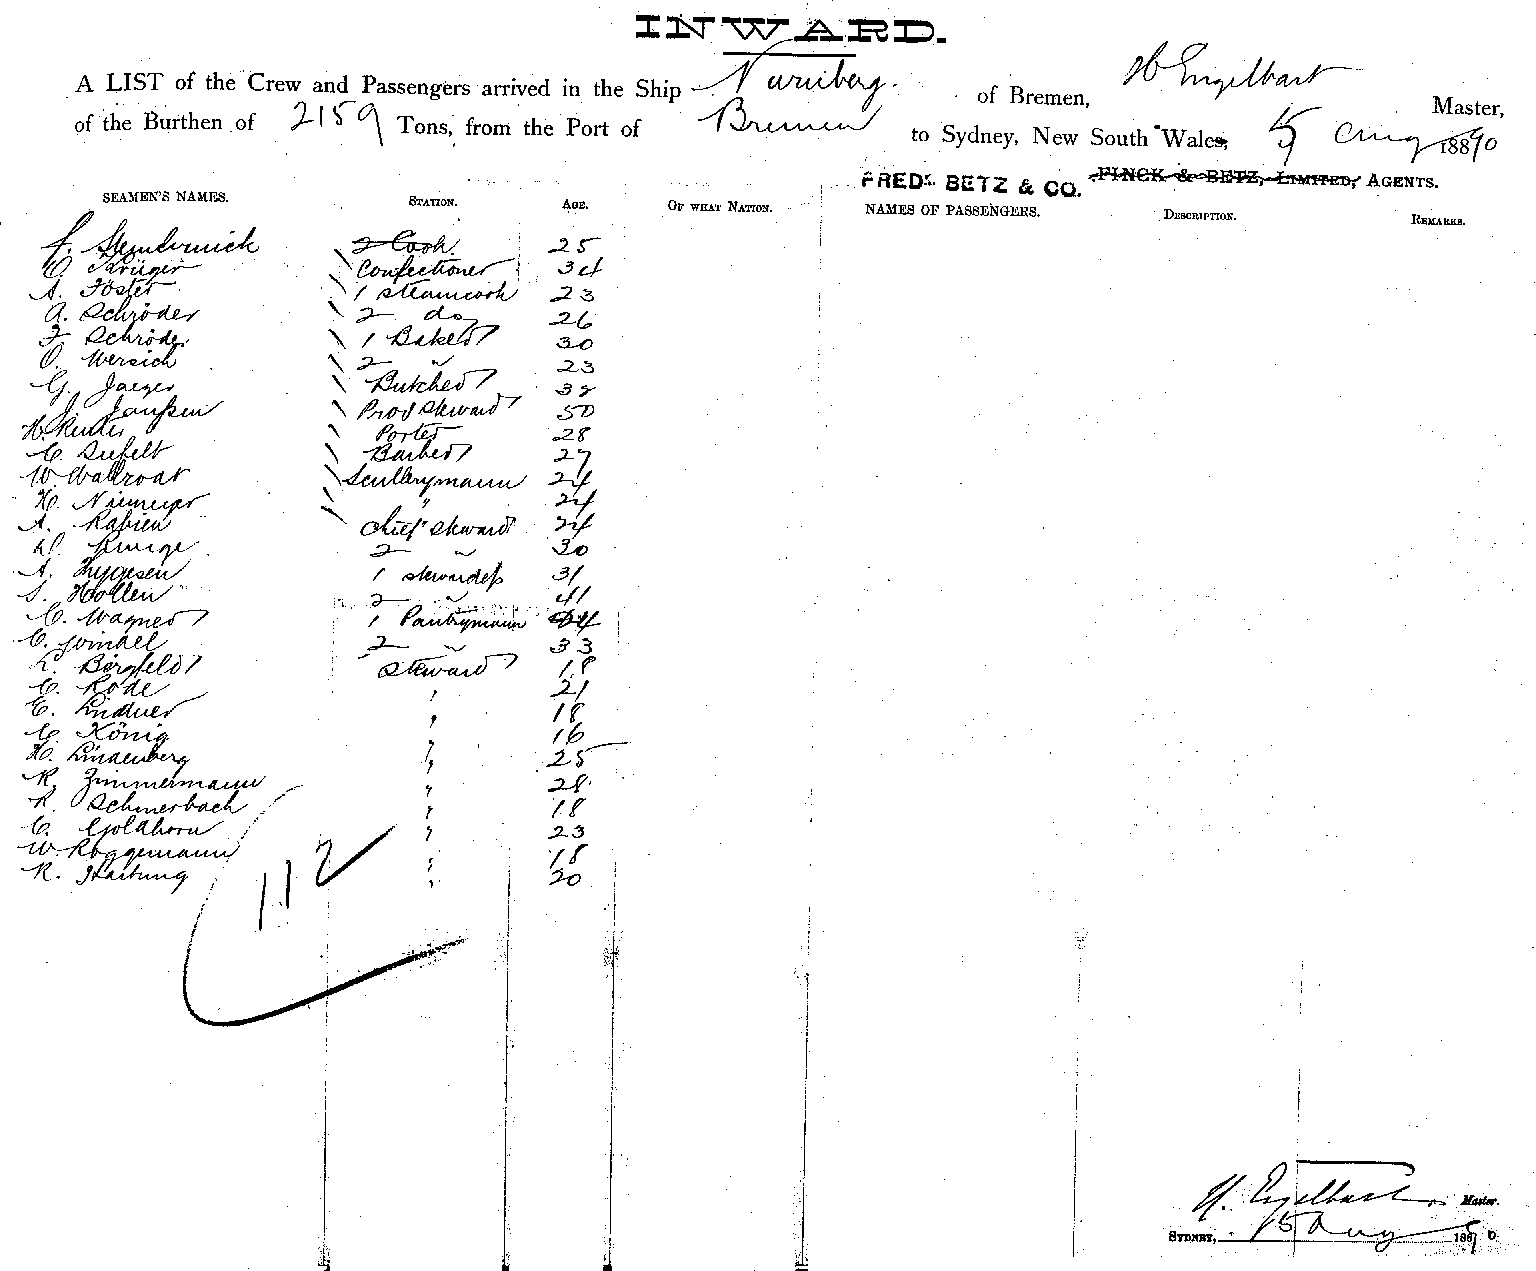 INWARD.
A LIST of the Crew and Passengers arrived in the Ship Nürnberg. of Bremen, H Engelbart Master,
of the Burthen of 2159 Tons, from the Port of Bremen to Sydney, New South Wales, 5 Aug 1890
FREDK. BETZ & CO. FINCK & BETZ, LIMITED, AGENTS.
SEAMEN'S NAMES. STATION. AGE. OF WHAT NATION. NAMES OF PASSENGERS. DESCRIPTION. REMARKS.
2 Cook 25
O. Krüger Confectioner 34
A. Föster 1 steamcook 23
A. Schröder 2 do 26
F Schröder 1 Baker 30
O. Wersich 2 " 23
G. Jaeger Butcher 32
J. Janßen Prov steward 50
H. Porter 28
C. Siefelt Barber 27
W. Wallroat Scullerymann 24
H. Niemeyer " 24
A. Rabien chief steward 24
Runge 2 " 30
A. Thygesen 1 stewardeß 31
S. Hollen 2 " 41
C. Wagner 1 Pantrymann 44
C. Windel 2 " 33
L. Bergfeld steward 18
C. Rode " 21
E. Lindner " 18
C. König " 16
H. Lindenberg " 25
R. Zimmermann " 28
R. Schmerbach " 18
C. Goldhorn " 23
W. Roggemann " 18
R. Hartung " 20
112
H. Engelbart Master.
SYDNEY, 5 Aug 1890